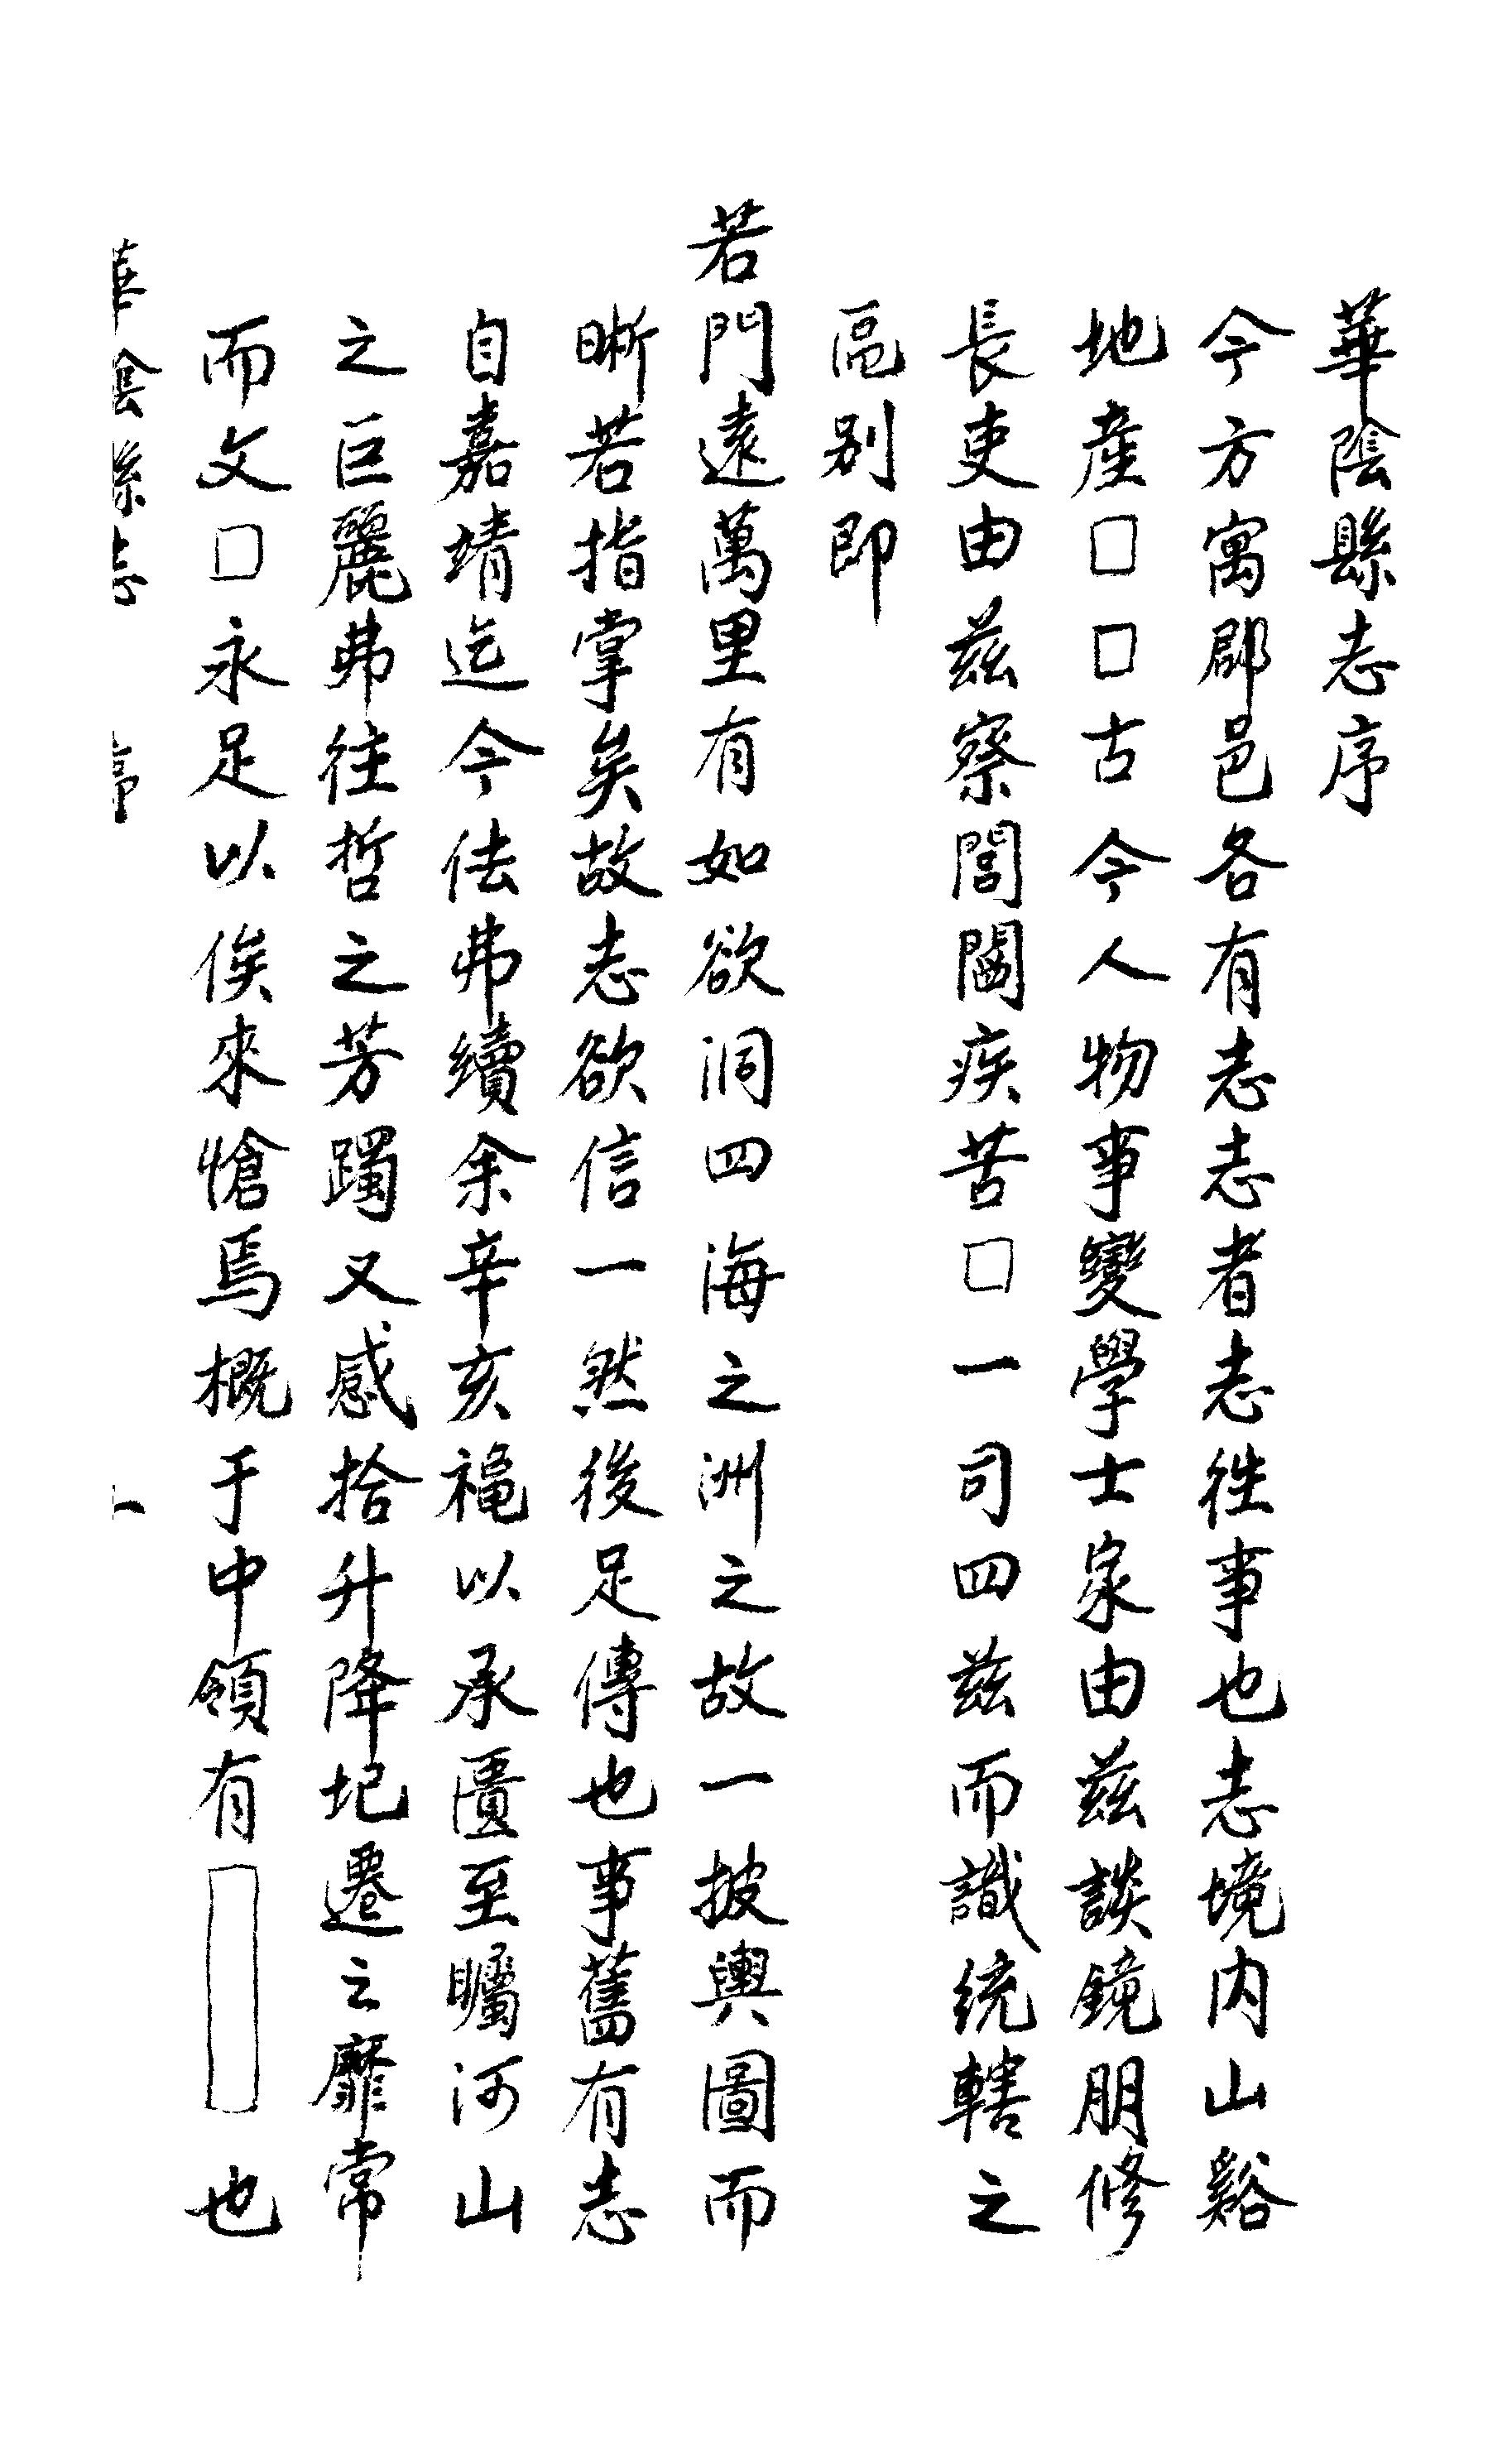 華陰縣志序
今方寓郡邑各有志志者志徃事也志境内山谿
地產□□古今人物事變學士家由兹談鏡朋修
長吏由兹察閭閻疾苦□一司四兹而識統轄之
區别即
若門遠萬里有如欲洞四海之洲之故一披輿圖而
晰若指掌矣故志欲信一然後足傳也事舊有志
自嘉靖迄今佉弗續余辛亥褫以承匱至矚河山
之巨麗弗往哲之芳躅又感拾升降圮遷之靡常
而文□永足以俟來愴焉概于中領有□也
華陰縣志 序 一